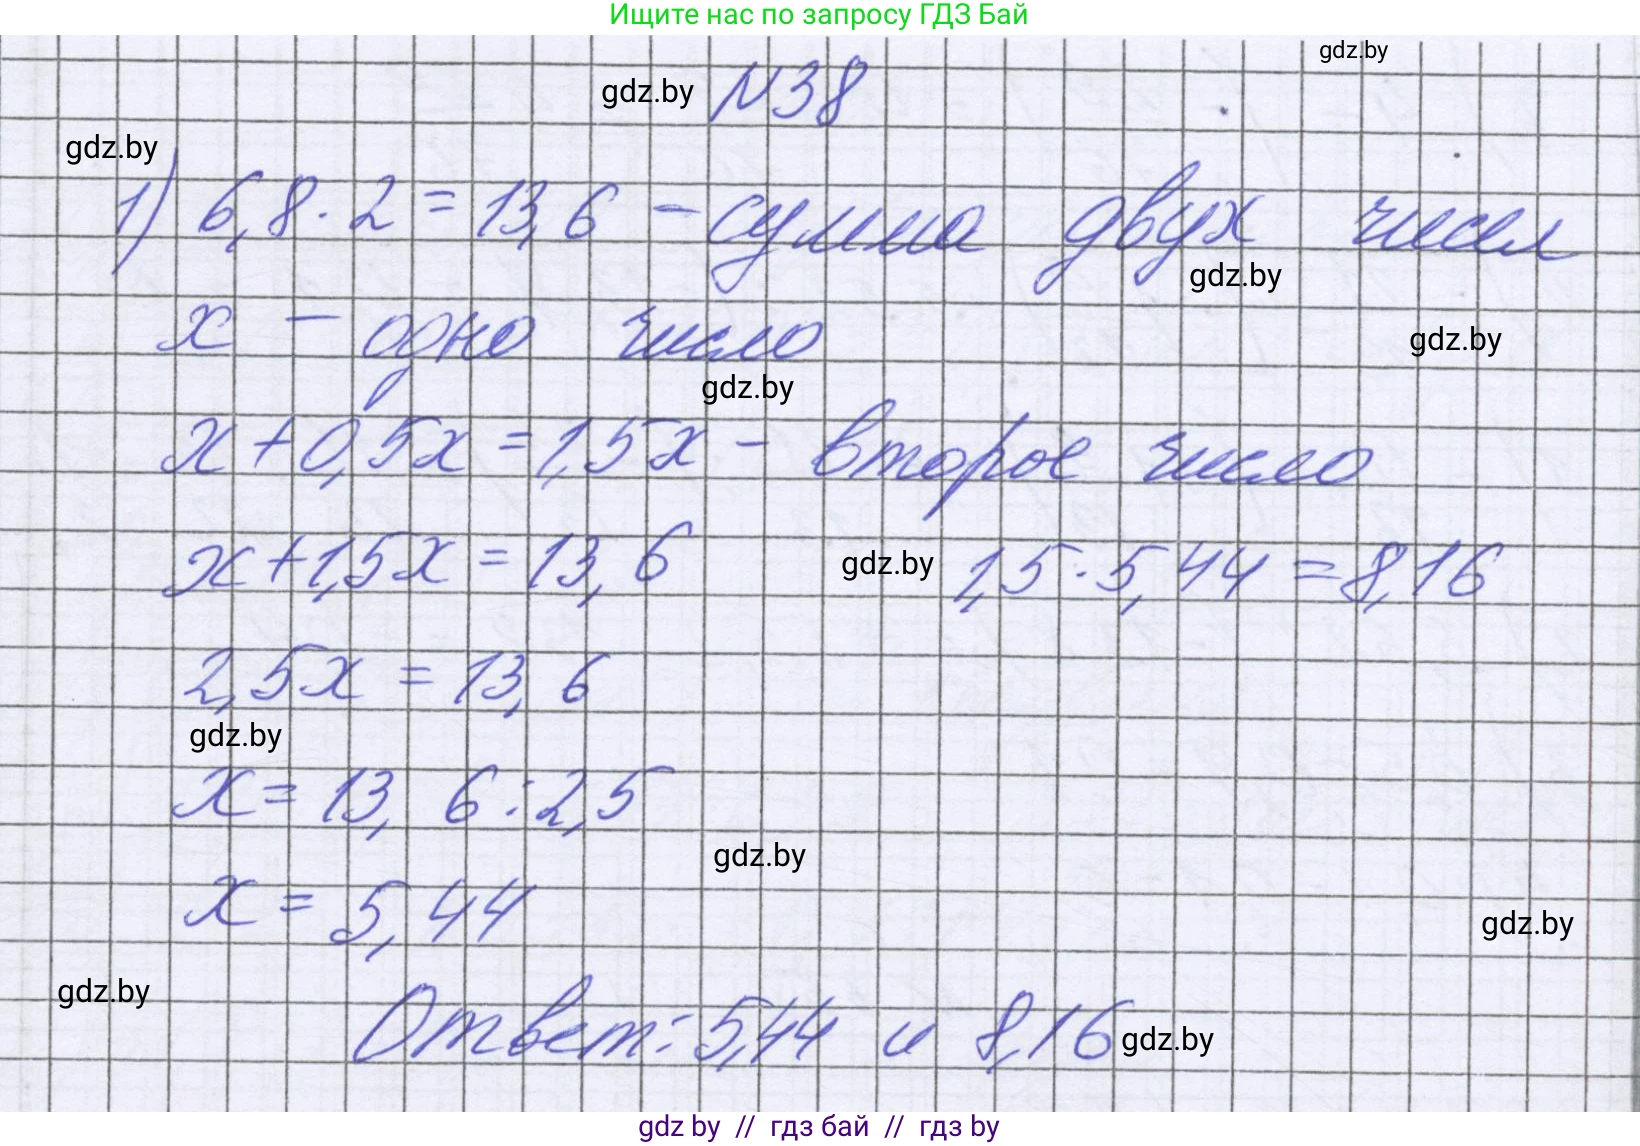 Ищите нас по запросу ГДЗ Бай
gdz.by
gdz.by N38
gdz.by
1) 6,8 · 2 = 13,6 - сумма двух чисел
gdz.by
x - одно число
gdz.by
gdz.by
x + 0,5x = 1,5x - второе число
x + 1,5x = 13,6 gdz.by 1,5 · 5,44 = 8,16
2,5x = 13,6
gdz.by
x = 13,6 : 2,5
gdz.by
x = 5,44
gdz.by
gdz.by
Ответ: 5,44 и 8,16 gdz.by
gdz by // гдз бай // гдз by